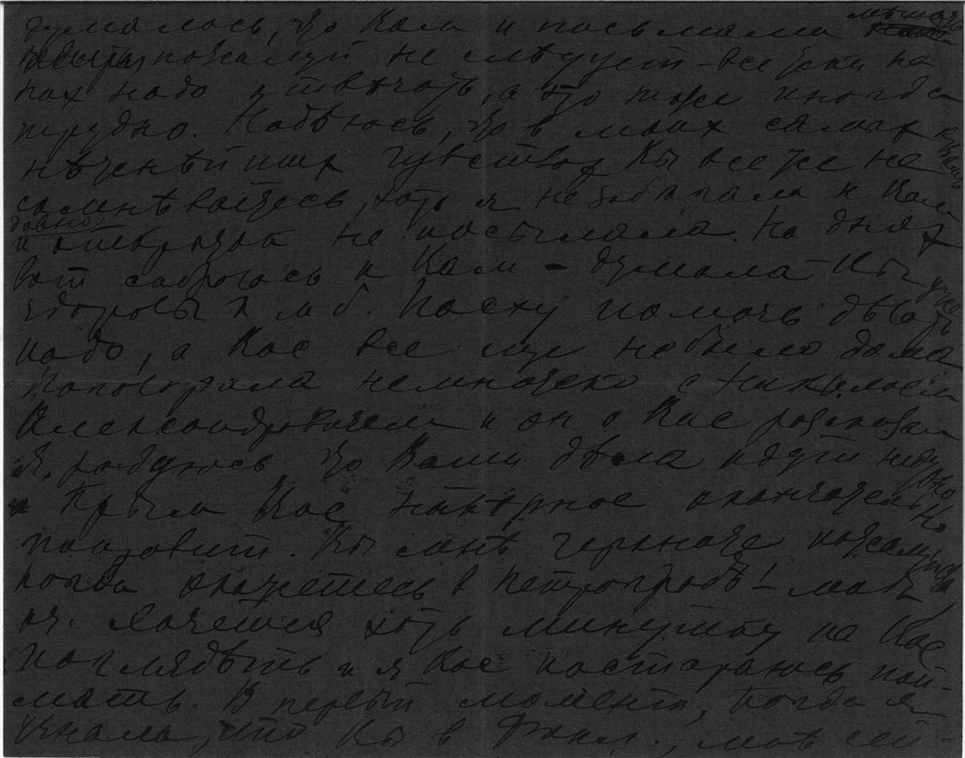 думалось, что Вам и письмами мѣшать
пожалуй не слѣдует - все таки на
них надо отвѣчать, а это тоже иногда
трудно. Надѣюсь, что в моих самых
нѣжнѣйших чувствах Вы все же не
сомнѣваетесь, хоть я не забѣгала к Вам
и открыток давно не посылала. На днях
вот собралась к Вам - думала - Вы уже
здоровы и м. б. Паску помочь дѣлать
надо, а Вас все еще не было дома
Поговорила немножечко с Николаем
Александровичем и он о Вас рассказал
Я радуюсь, что Ваши дѣла идут недурно
Крым Вас навѣрное окончательно
поправит. Вы мнѣ черкните пожалуйста,
когда окажетесь в Петроградѣ! - мнѣ
оч. хочется хоть минутку на Вас
поглядѣть и я Вас постараюсь пой-
мать. В первый момент, когда я
узнала, что Вы в Финл., мнѣ